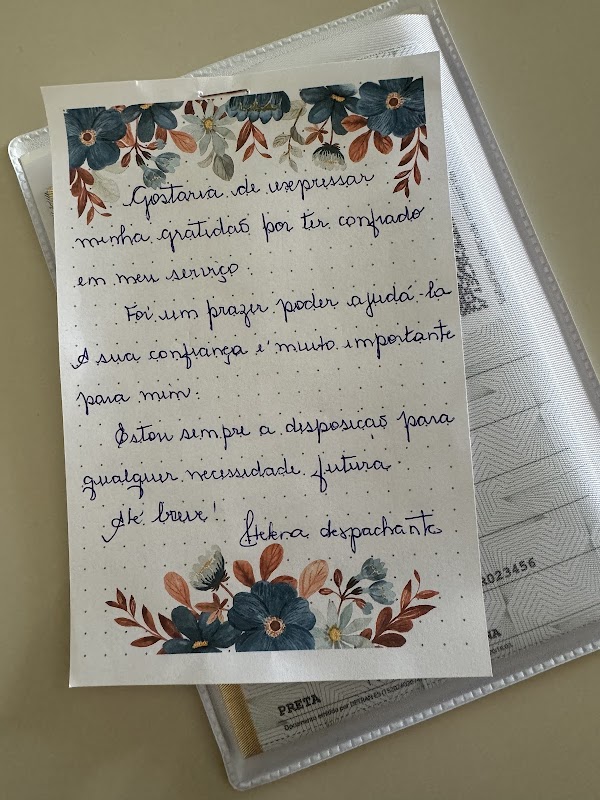 Gostaria de expressar
minha gratidão por ter confiado
em meu serviço.
Foi um prazer poder ajudá-la
A sua confiança é muito importante
para mim.
Estou sempre a disposição para
qualquer necessidade futura
Até breve!
Helena despachante
023456
PRETA
Documento emitido por DETRAN